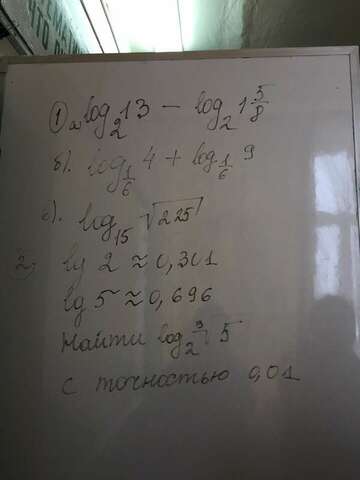 ЧТО
1 а) log₂ 13 − log₂ 1 5/8
б). log_{1/6} 4 + log_{1/6} 9
в). log₁₅ √225
2) lg 2 ≈ 0,301
lg 5 ≈ 0,696
Найти log₂ ³√5
с точностью 0,01